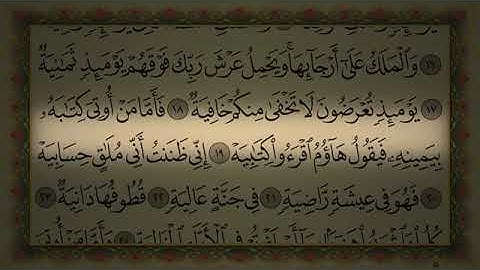 ١٦ وَٱلْمَلَكُ عَلَىٰٓ أَرْجَآئِهَا ۚ وَيَحْمِلُ عَرْشَ رَبِّكَ فَوْقَهُمْ يَوْمَئِذٍ ثَمَٰنِيَةٌ
١٧ يَوْمَئِذٍ تُعْرَضُونَ لَا تَخْفَىٰ مِنكُمْ خَافِيَةٌ ١٨ فَأَمَّا مَنْ أُوتِىَ كِتَٰبَهُۥ
بِيَمِينِهِۦ فَيَقُولُ هَآؤُمُ ٱقْرَءُوا۟ كِتَٰبِيَهْ ١٩ إِنِّى ظَنَنتُ أَنِّى مُلَٰقٍ حِسَابِيَهْ
٢٠ فَهُوَ فِى عِيشَةٍ رَّاضِيَةٍ ٢١ فِى جَنَّةٍ عَالِيَةٍ ٢٢ قُطُوفُهَا دَانِيَةٌ ٢٣